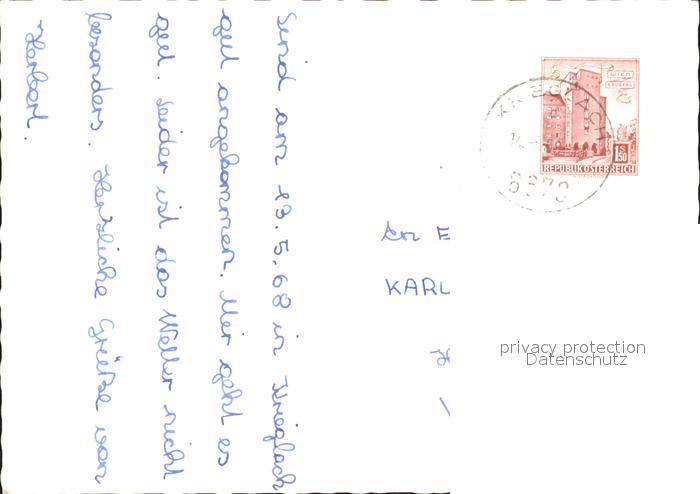 Sind am 13.5.68 in Krieglach
gut angekommen. Mir geht es
gut. Leider ist das Wetter nicht
besonders. Herzliche Grüße von
Herbert.
WIEN
KRIEGLACH
8670
1.50
REPUBLIK ÖSTERREICH
An E
KARL
privacy protection
Datenschutz